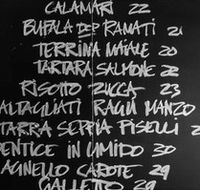 CALAMARI 22
BUFALA DOP RAMATI 21
TERRINA MAIALE 20
TARTARA SALMONE 22
RISOTTO ZUCCA 23
ALTAGLIATI RAGÙ MANZO
TARRA SEPPIA PISELLI 2
DENTICE IN UMIDO 30
AGNELLO CAROTE 29
GALLETTO 29